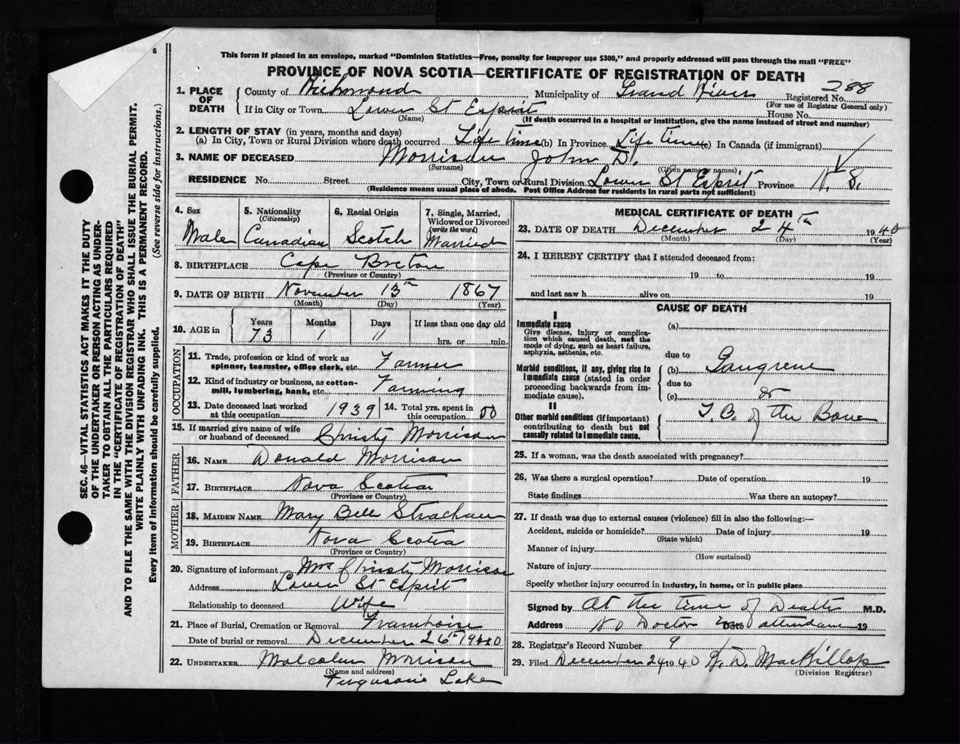 6
This form if placed in an envelope, marked "Dominion Statistics—Free, penalty for improper use $300," and properly addressed will pass through the mail "FREE"
PROVINCE OF NOVA SCOTIA—CERTIFICATE OF REGISTRATION OF DEATH
288
1. PLACE OF DEATH County of Richmond Municipality of Grand River Registered No.
(For use of Registrar General only)
If in City or Town Lower St Esprit Street House No.
(Name) (If death occurred in a hospital or institution, give the name instead of street and number)
2. LENGTH OF STAY (in years, months and days)
(a) In City, Town or Rural Division where death occurred Life time (b) In Province Life Time (c) In Canada (if immigrant)
3. NAME OF DECEASED Morrison John D.
(Surname) (Given name or names)
RESIDENCE No. Street City, Town or Rural Division Lower St Esprit Province N. S.
(Residence means usual place of abode. Post Office Address for residents in rural parts not sufficient)
4. Sex Male
5. Nationality (Citizenship) Canadian
6. Racial Origin Scotch
7. Single, Married, Widowed or Divorced (write the word) Married
8. BIRTHPLACE Cape Breton
(Province or Country)
9. DATE OF BIRTH November 13th 1867
(Month) (Day) (Year)
10. AGE in Years 73 Months 1 Days 11 If less than one day old hrs. or min.
OCCUPATION
11. Trade, profession or kind of work as spinner, teamster, office clerk, etc. Farmer
12. Kind of industry or business, as cotton-mill, lumbering, bank, etc. Farming
13. Date deceased last worked at this occupation 1939 14. Total yrs. spent in this occupation
15. If married give name of wife or husband of deceased Christy Morrison
FATHER
16. NAME Donald Morrison
17. BIRTHPLACE Nova Scotia
(Province or Country)
MOTHER
18. MAIDEN NAME Mary Bell Strachan
19. BIRTHPLACE Nova Scotia
(Province or Country)
20. Signature of informant Mrs Christy Morrison
Address Lower St Esprit
Relationship to deceased Wife
21. Place of Burial, Cremation or Removal Framboise
Date of burial or removal December 26th 1940
22. UNDERTAKER Malcolm Morrison
(Name and address)
Fergusons Lake
MEDICAL CERTIFICATE OF DEATH
23. DATE OF DEATH December 24th 1940
(Month) (Day) (Year)
24. I HEREBY CERTIFY that I attended deceased from:
19 to 19
and last saw h alive on 19
CAUSE OF DEATH
I
Immediate cause (a)
Give disease, injury or complication which caused death, not the mode of dying, such as heart failure, asphyxia, asthenia, etc.
due to
Morbid conditions, if any, giving rise to immediate cause (stated in order proceeding backwards from immediate cause).
(b) Gangrene
due to
(c) &
II
Other morbid conditions (if important) contributing to death but not causally related to immediate cause.
T.B. of the Bone
25. If a woman, was the death associated with pregnancy?
26. Was there a surgical operation? Date of operation 19
State findings Was there an autopsy?
27. If death was due to external causes (violence) fill in also the following:—
Accident, suicide or homicide? Date of injury 19
(State which)
Manner of injury
(How sustained)
Nature of injury
Specify whether injury occurred in industry, in home, or in public place
Signed by At the time of Death M.D.
Address No Doctor in attendance Date 19
28. Registrar's Record Number 9
29. Filed December 24 1940 K. D. MacKillop
(Division Registrar)
SEC. 46—VITAL STATISTICS ACT MAKES IT THE DUTY
OF THE UNDERTAKER OR PERSON ACTING AS UNDER-
TAKER TO OBTAIN ALL THE PARTICULARS REQUIRED
IN THE "CERTIFICATE OF REGISTRATION OF DEATH"
AND TO FILE THE SAME WITH THE DIVISION REGISTRAR WHO SHALL ISSUE THE BURIAL PERMIT.
WRITE PLAINLY WITH UNFADING INK. THIS IS A PERMANENT RECORD.
Every item of information should be carefully supplied. (See reverse side for instructions.)